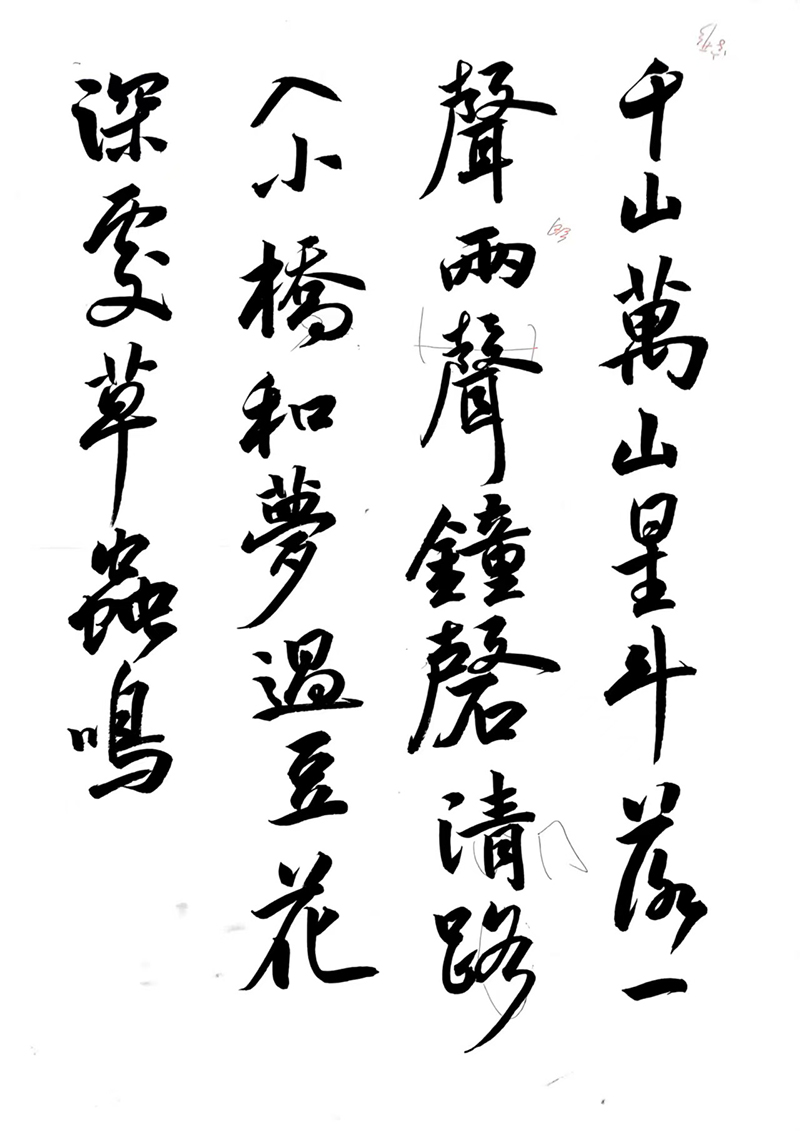 千山萬山星斗落一
聲兩聲鐘磬清路
入小橋和夢過豆花
深處草蟲鳴